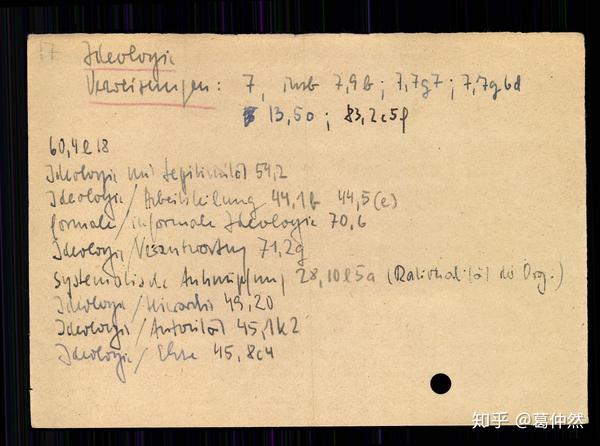 17 Ideologie
Verweisungen: 7, insb 7,9b; 7,7g7; 7,7g6d
13,50; 83,2c5f
60,4e18
Ideologie und Legitimität 54,2
Ideologie/Arbeitsteilung 44,1b 44,5(e)
formale/informale Ideologie 70,6
Ideologie/Verantwortung 71,2g
Systematische Anknüpfung 28,10e5a (Rationalität der Org.)
Ideologie/Hierarchie 49,20
Ideologie/Autorität 45,1k2
Ideologie/ 45,8c4
知乎 @葛仲然